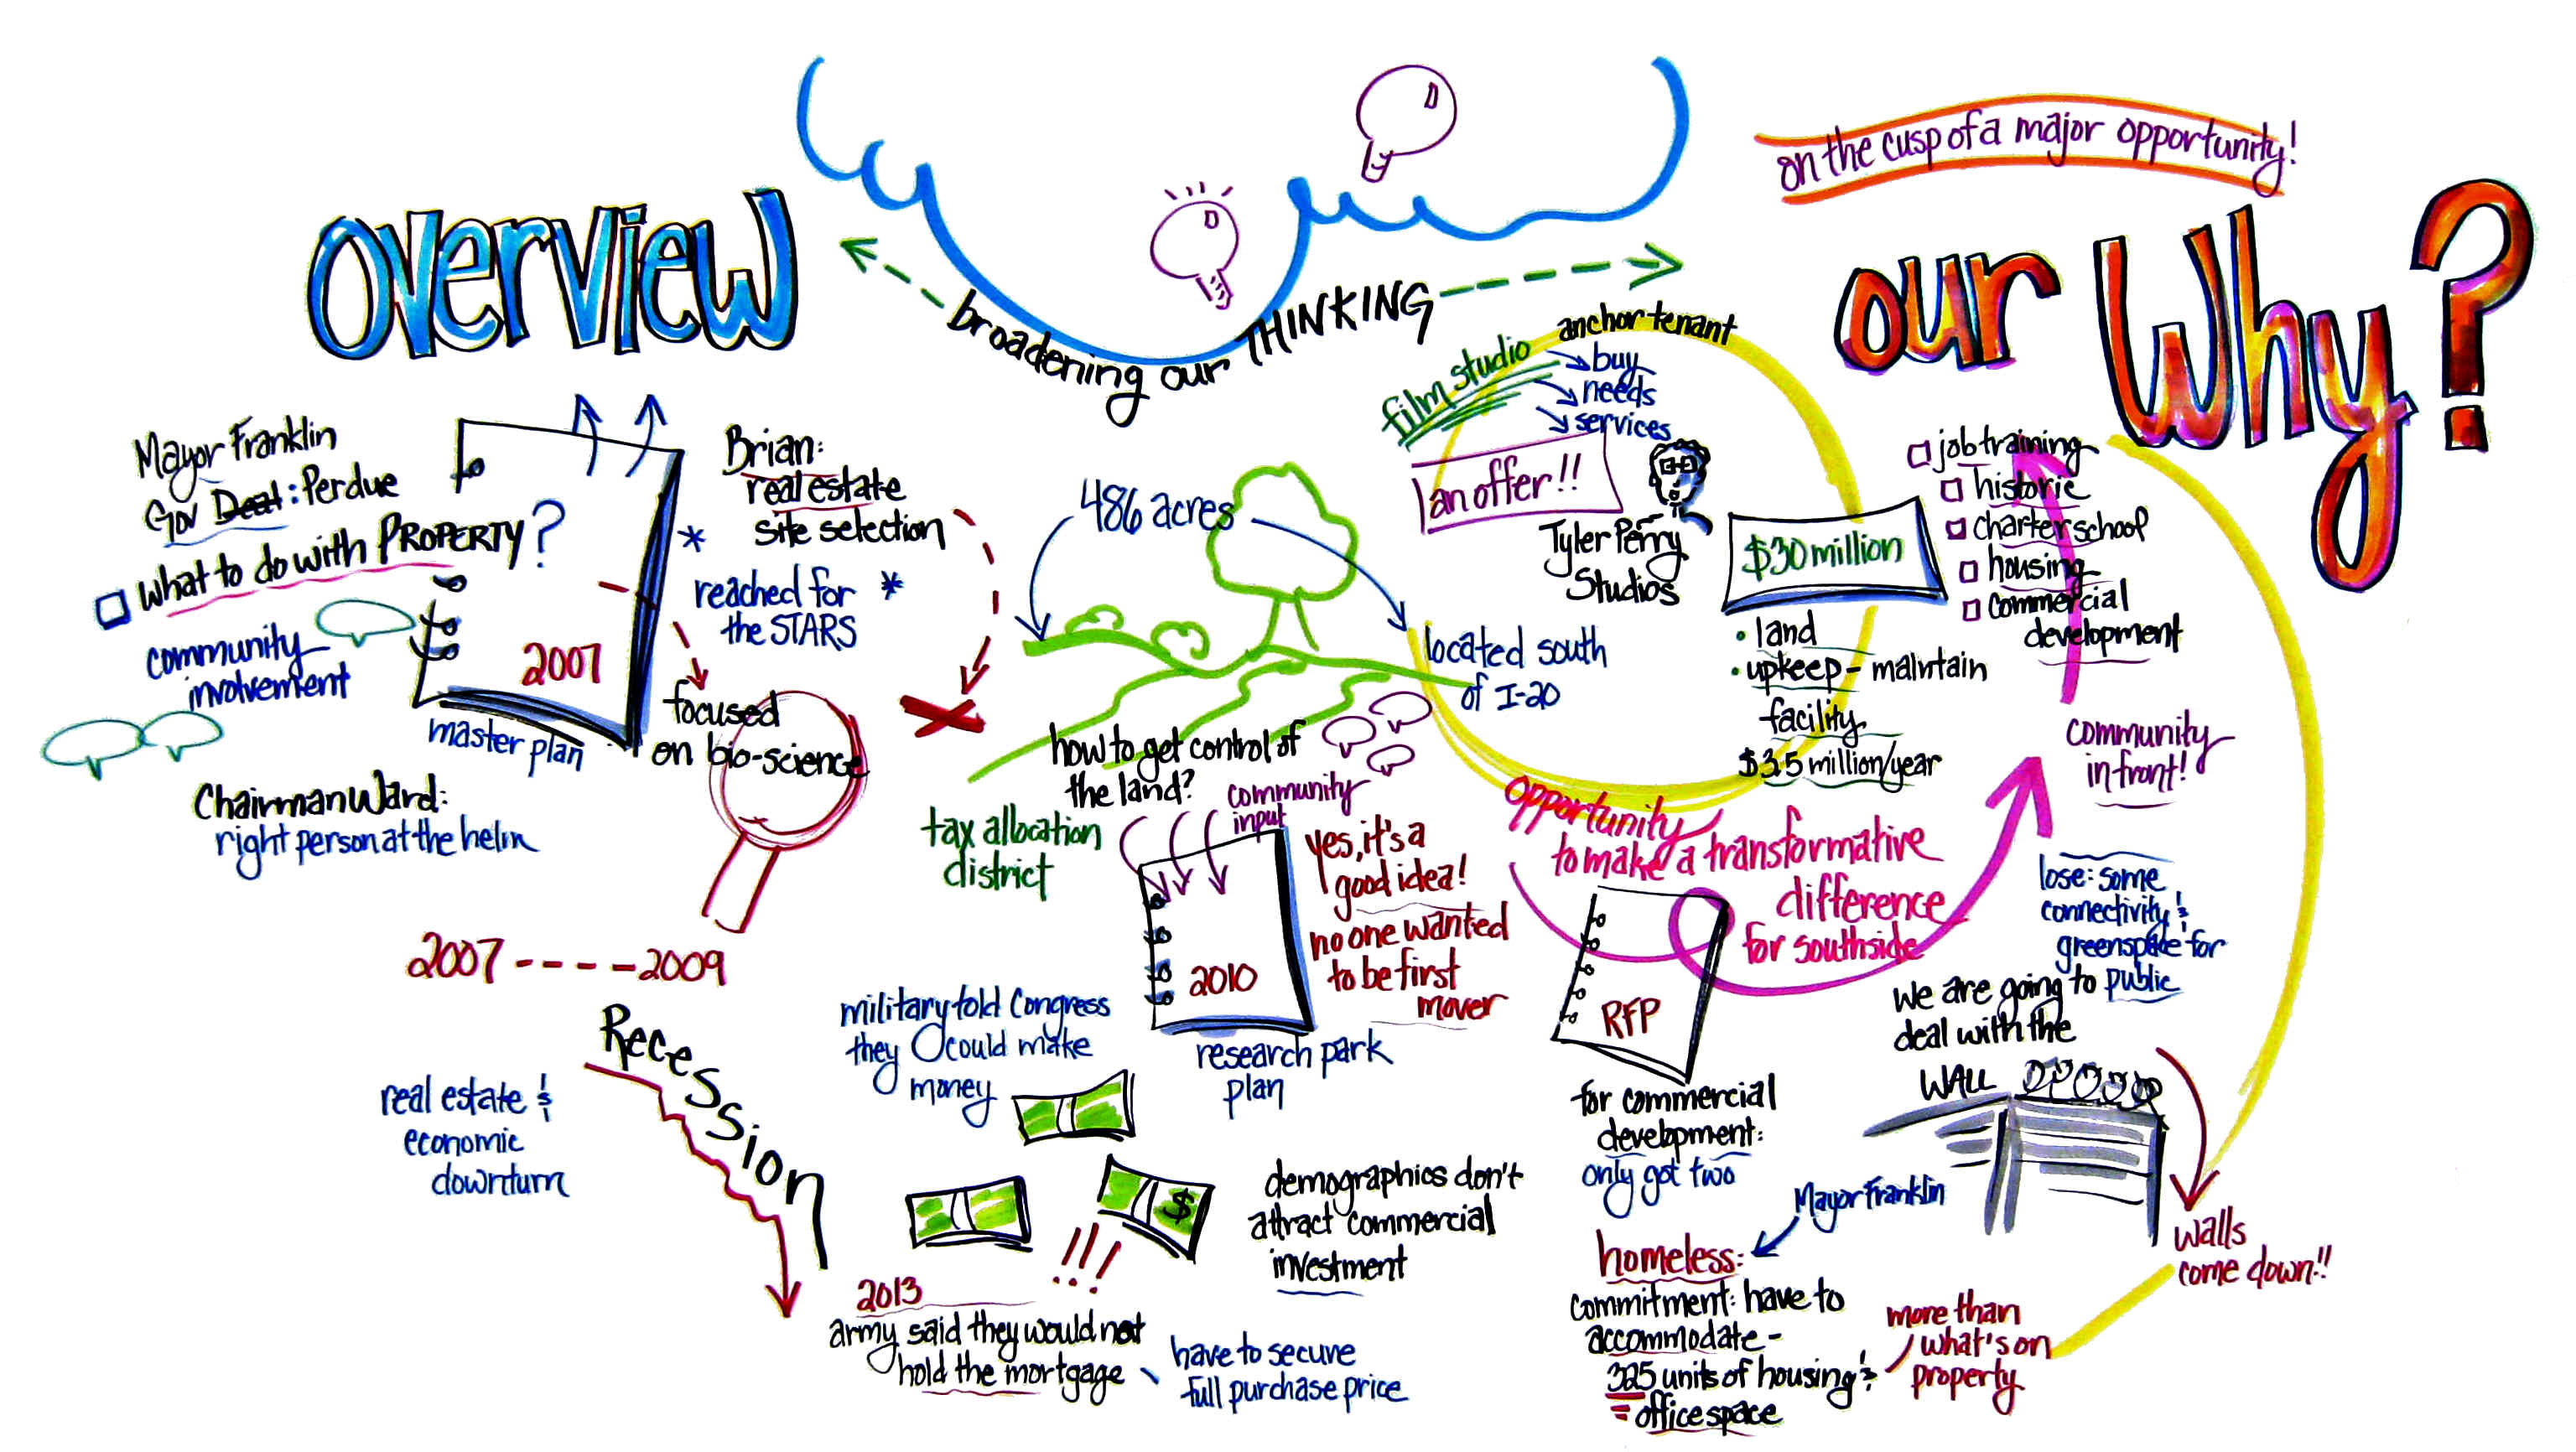 Overview
Mayor Franklin
Gov Deal: Perdue
What to do with PROPERTY?
community
involvement
2007
master plan
Chairman Ward:
right person at the helm
Brian:
real estate
site selection
* reached for *
the STARS
focused
on bio-science
2007 ---- 2009
Recession
real estate &
economic
downturn
broadening our THINKING
486 acres
located south
of I-20
how to get control of
the land?
tax allocation
district
community
input
2010
research park
plan
yes, it's a
good idea!
no one wanted
to be first
mover
military told Congress
they could make
money
$
!!!
demographics don't
attract commercial
investment
2013
army said they would not
hold the mortgage
have to secure
full purchase price
film studio
anchor tenant
buy
needs
services
an offer!!
Tyler Perry
Studios
$30 million
• land
• upkeep - maintain
facility
$3.5 million/year
opportunity
to make a transformative
difference
for southside
RFP
for commercial
development:
only got two
Mayor Franklin
homeless:
commitment: have to
accommodate -
325 units of housing &
office space
more than
what's on
property
on the cusp of a major opportunity!
our Why?
job training
historic
charter school
housing
commercial
development
community
in front!
lose: some
connectivity &
greenspace for
public
we are going to
deal with the
WALL
walls
come down!!